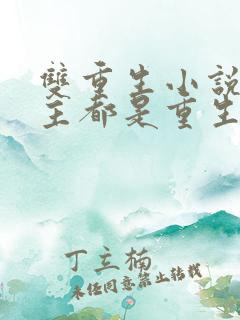 雙重生小說
主都是重生
丁立楠
未經同意禁止轉載